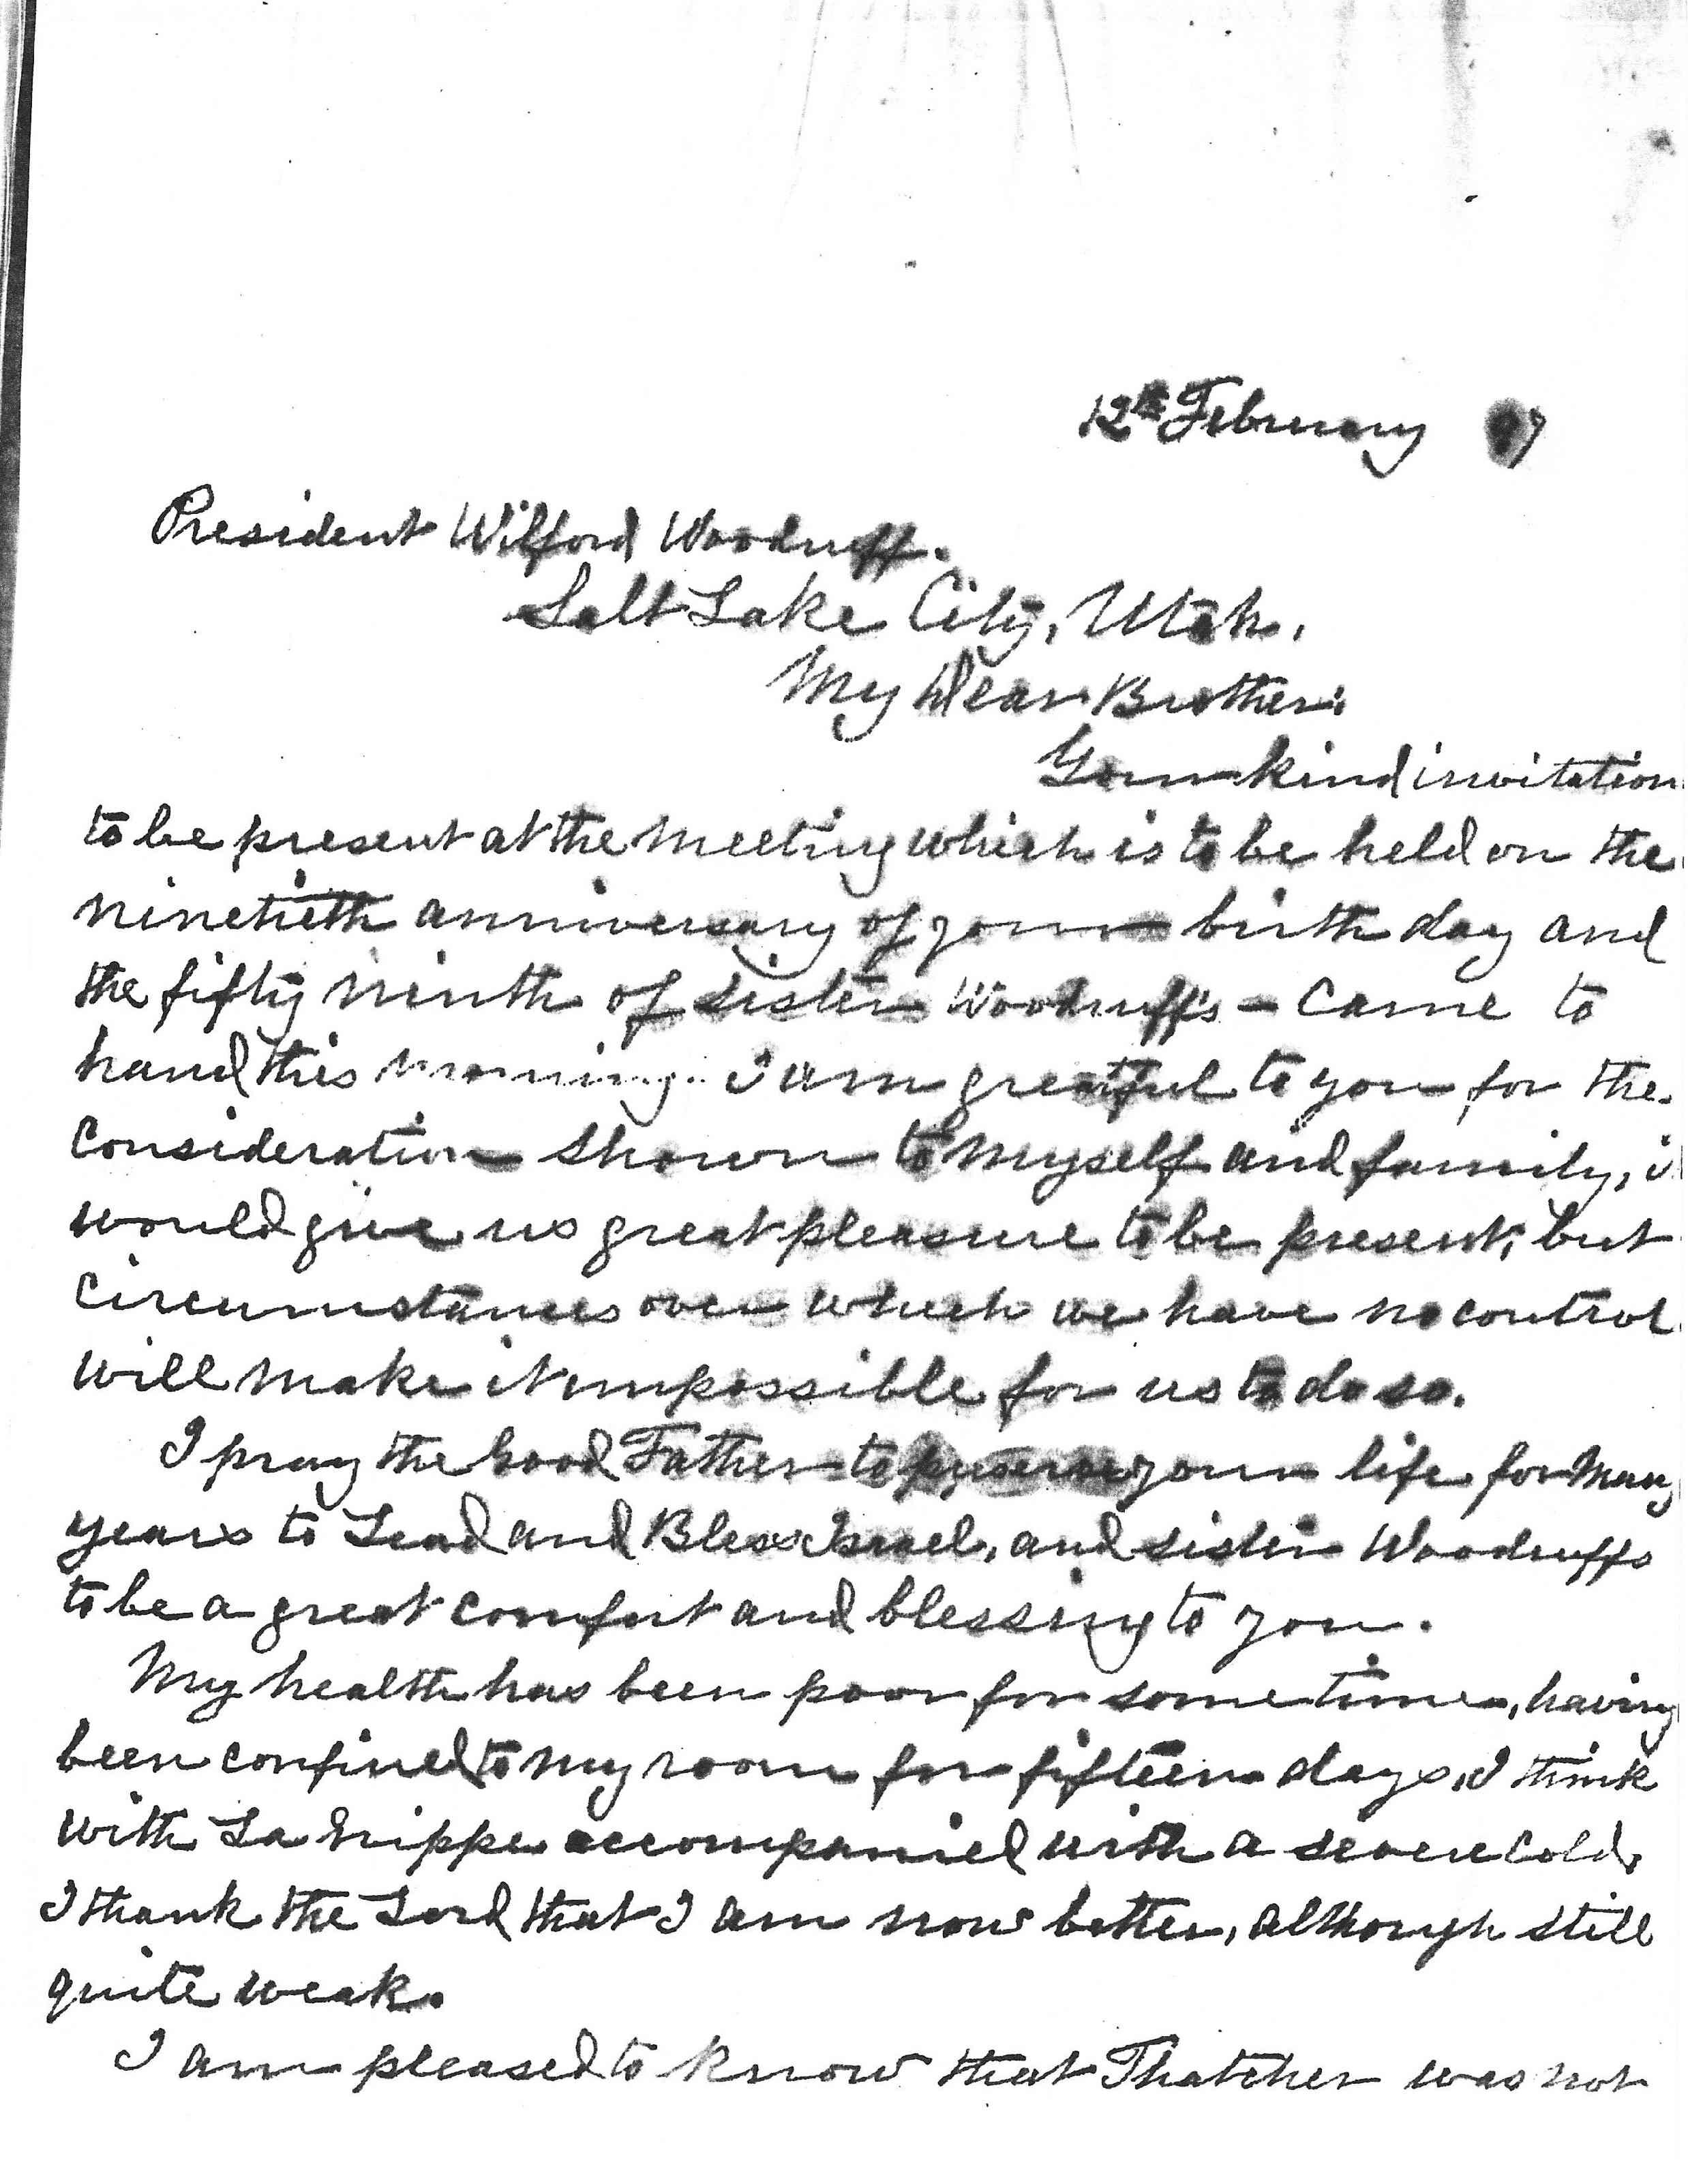 12th February 97
President Wilford Woodruff.
Salt Lake City, Utah.
My Dear Brother:
Your kind invitation
to be present at the meeting which is to be held on the
ninetieth anniversary of your birth day and
the fifty ninth of sister Woodruff's - came to
hand this morning. I am greatful to you for the
consideration shown to myself and family, i
would give us great pleasure to be present, but
circumstances over which we have no control
will make it impossible for us to do so.
I pray the Good Father to preserve your life for many
years to Lead and Bless Israel, and sister Woodruffs
to be a great comfort and blessing to you.
My health has been poor for some time, having
been confined to my room for fifteen days, I think
with La Grippe accompanied with a severe cold,
I thank the Lord that I am now better, although still
quite weak.
I am pleased to know that Thatcher was not